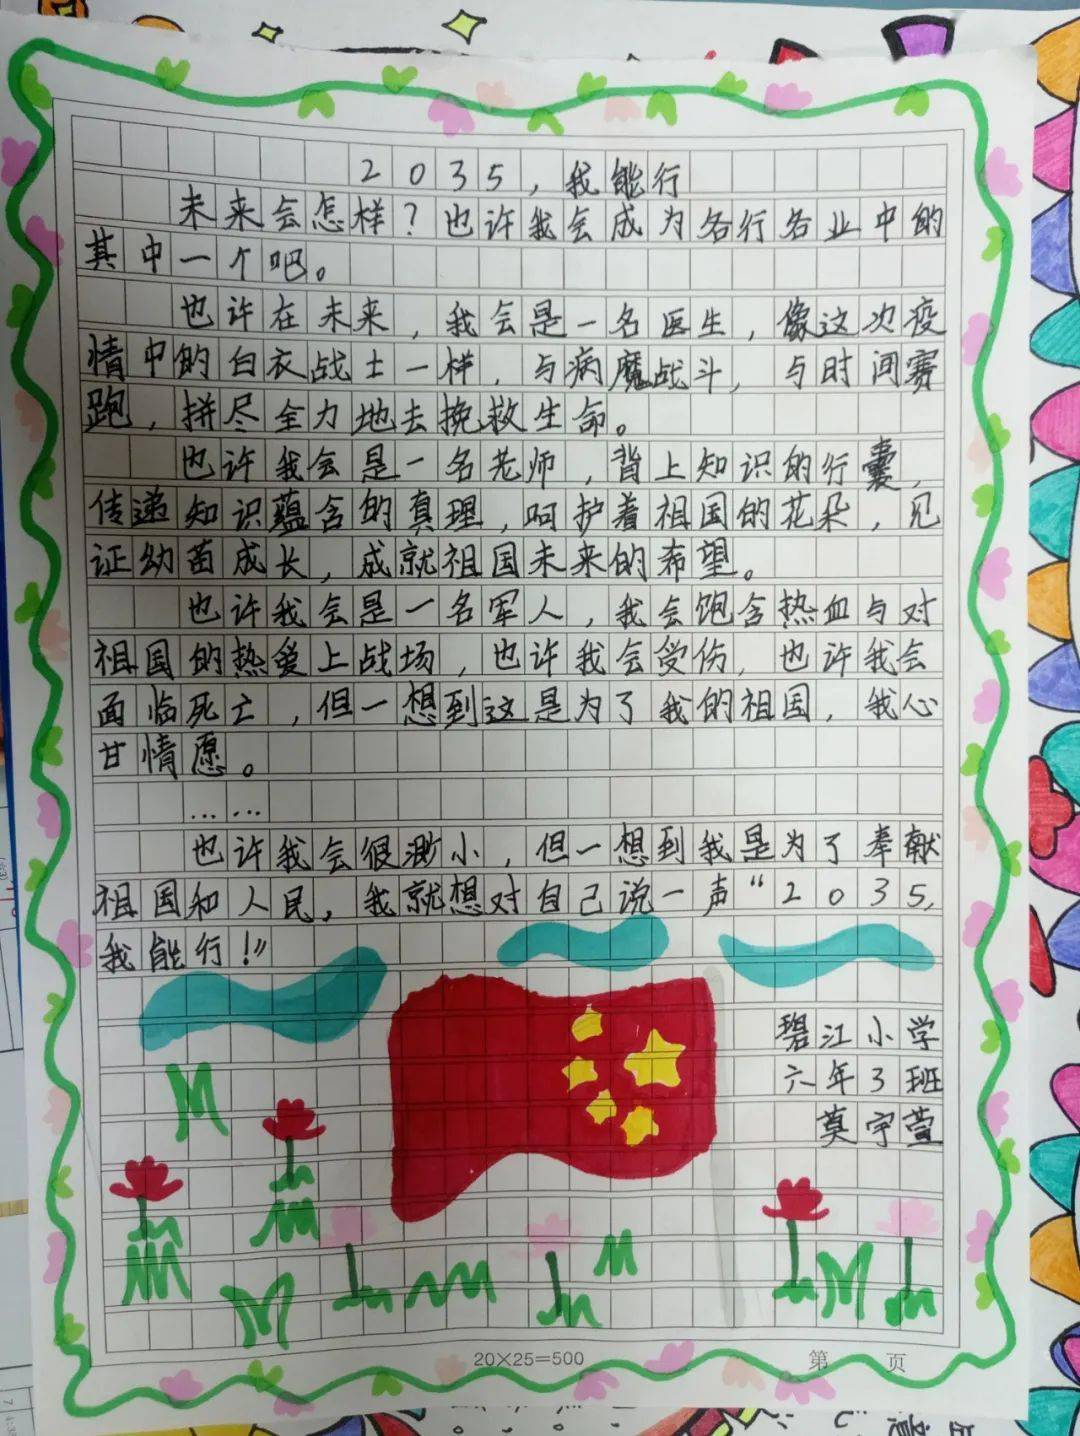 2035，我能行
未来会怎样？也许我会成为各行各业中的
其中一个吧。
也许在未来，我会是一名医生，像这次疫
情中的白衣战士一样，与病魔战斗，与时间赛
跑，拼尽全力地去挽救生命。
也许我会是一名老师，背上知识的行囊，
传递知识蕴含的真理，呵护着祖国的花朵，见
证幼苗成长，成就祖国未来的希望。
也许我会是一名军人，我会饱含热血与对
祖国的热爱上战场，也许我会受伤，也许我会
面临死亡，但一想到这是为了我的祖国，我心
甘情愿。
……
也许我会很渺小，但一想到我是为了奉献
祖国和人民，我就想对自己说一声“2035，
我能行！”
碧江小学
六年3班
莫宇萱
20×25=500
第 页